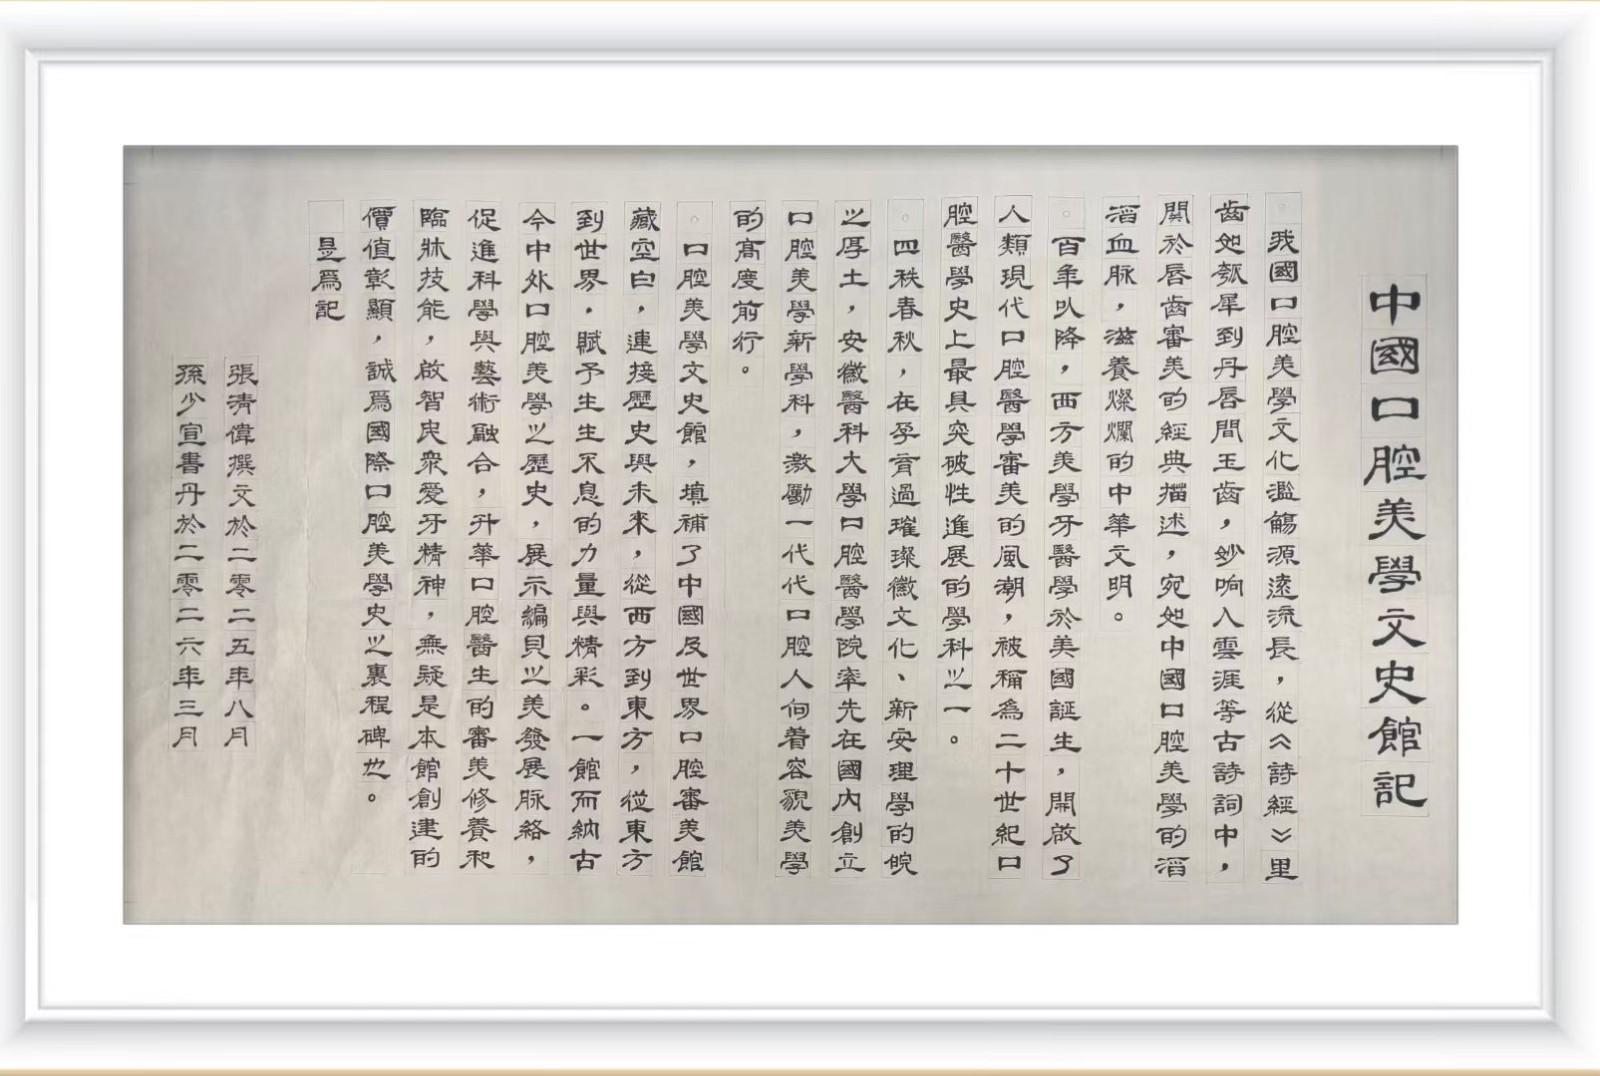 中國口腔美學文史館記
我國口腔美學文化濫觴源遠流長，從《詩經》里
齒如瓠犀到丹唇間玉齒，妙响入雲涯等古詩詞中，
關於唇齒審美的經典描述，宛如中國口腔美學的滔
滔血脉，滋養燦爛的中華文明。
百年以降，西方美學牙醫學於美國誕生，開啟了
人類現代口腔醫學審美的風潮，被稱為二十世紀口
腔醫學史上最具突破性進展的學科之一。
四秩春秋，在孕育過璀璨徽文化、新安理學的皖
之厚土，安徽醫科大學口腔醫學院率先在國內創立
口腔美學新學科，激勵一代代口腔人向着容貌美學
的高度前行。
口腔美學文史館，填補了中國及世界口腔審美館
藏空白，連接歷史與未來，從西方到東方，從東方
到世界，賦予生生不息的力量與精彩。一館而納古
今中外口腔美學之歷史，展示編貝之美發展脉絡，
促進科學與藝術融合，升華口腔醫生的審美修養和
臨牀技能，啟智民衆愛牙精神，無疑是本館創建的
價值彰顯，誠爲國際口腔美學史之裏程碑也。
是爲記
張清偉撰文於二零二五年八月
孫少宣書丹於二零二六年三月